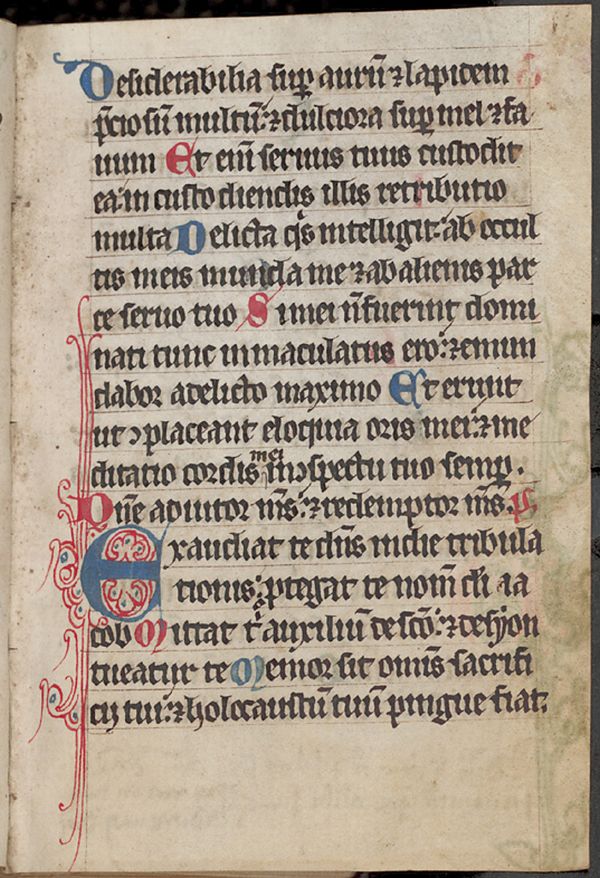 Desiderabilia sup aurū ⁊ lapidem
p̄ciosū multū: ⁊ dulciora sup mel ⁊ fa
uum Et eni᷒ seruus tuus custodit
ea: in custodiendis illis retributio
multa Delicta qͥs intelligit: ab occul
tis meis munda me ⁊ ab alienis par
ce seruo tuo Si mei n̄ fuerint domi
nati tunc inmaculatus ero: ⁊ emun
dabor a delicto maximo Et erunt
ut ↄplaceant eloquia oris mei: ⁊ me
ditatio cordis mei in ↄspectu tuo semp.
Dn̄e adiutor m̄s: ⁊ redemptor m̄s. p̄s
Exaudiat te dn̄s in die tribula
tionis: ꝓtegat te nom̄ di᷒ ia
cob Mittat tͥ auxiliū de sc̄o: ⁊ de syon
tueatur te Memor sit omīs sacrifi
cij tui: ⁊ holocaustū tuū pingue fiat: